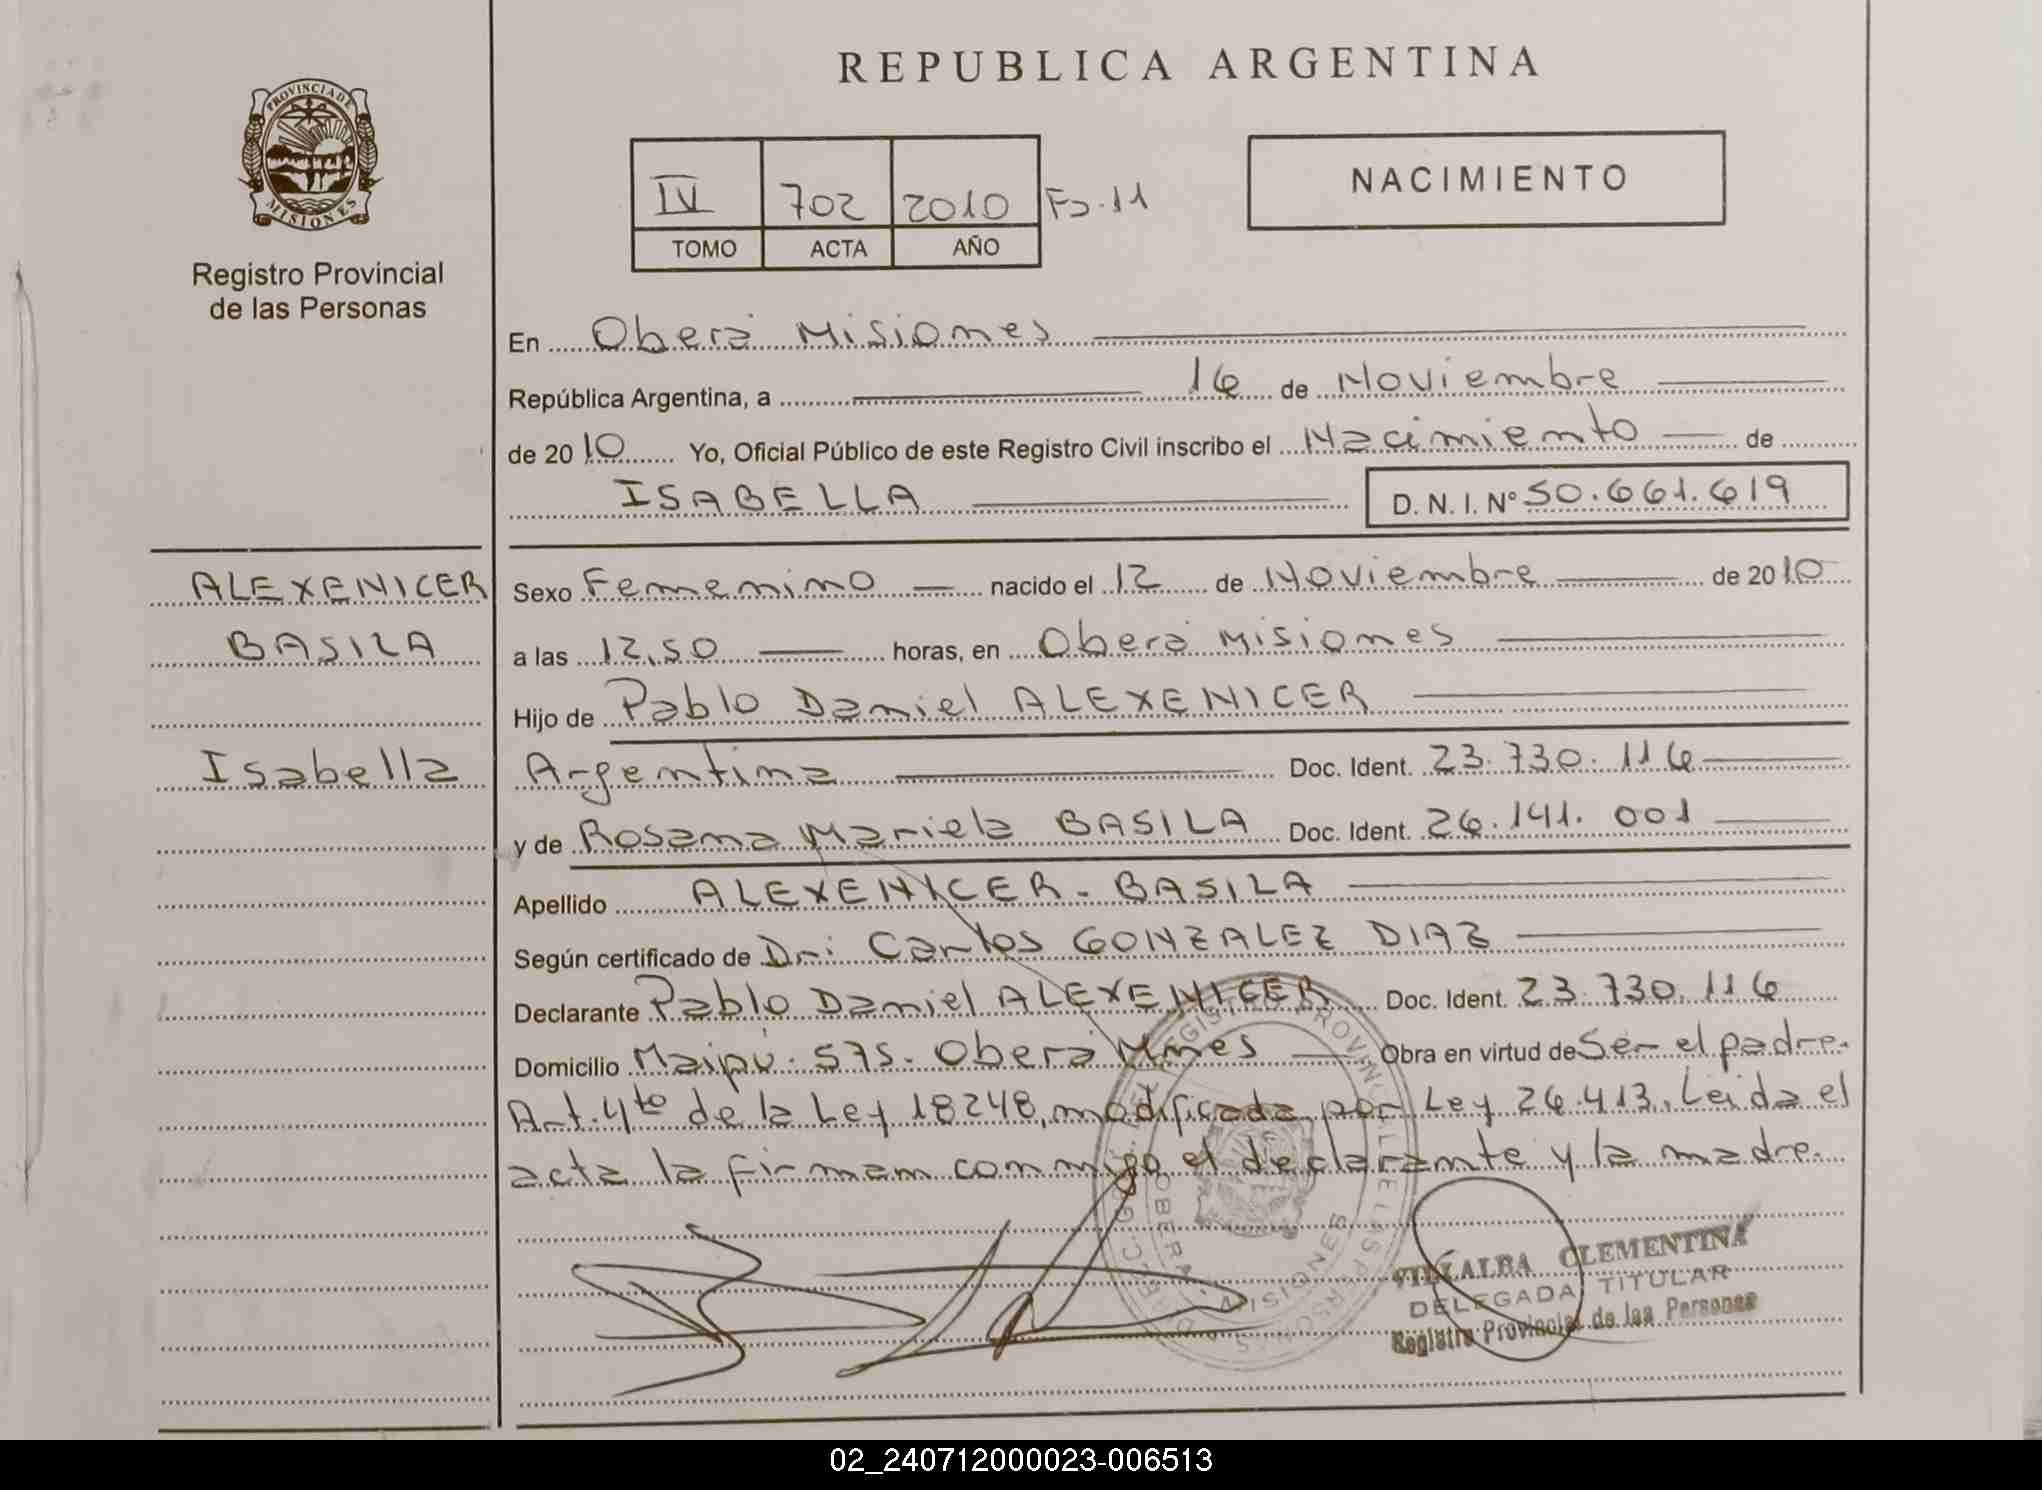 REPUBLICA ARGENTINA
PROVINCIA DE
MISIONES
Registro Provincial
de las Personas
IV 702 2010 Fo. 11
TOMO ACTA AÑO
NACIMIENTO
En Oberá Misiones
República Argentina, a 16 de Noviembre
de 2010 Yo, Oficial Público de este Registro Civil inscribo el Nacimiento de
ISABELLA D. N. I. Nº 50.661.619
ALEXENICER
BASILA
Isabella
Sexo Femenino nacido el 12 de Noviembre de 2010
a las 12,50 horas, en Oberá Misiones
Hijo de Pablo Daniel ALEXENICER
Argentina Doc. Ident. 23.730.116
y de Rosana Mariela BASILA Doc. Ident. 26.141.001
Apellido ALEXENICER - BASILA
Según certificado de Dr: Carlos GONZALEZ DIAZ
Declarante Pablo Daniel ALEXENICER Doc. Ident. 23.730.116
Domicilio Maipú. 575. Oberá Mnes Obra en virtud de Ser el padre.
Art. 4to de la Ley 18248, modificada por Ley 26.413. Leida el
acta la firman conmigo el declarante y la madre.
REGISTRO PROVINCIAL DE LAS PERSONAS
OBERA - MISIONES
VILLALBA CLEMENTINA
DELEGADA TITULAR
Registro Provincial de las Personas
02_240712000023-006513